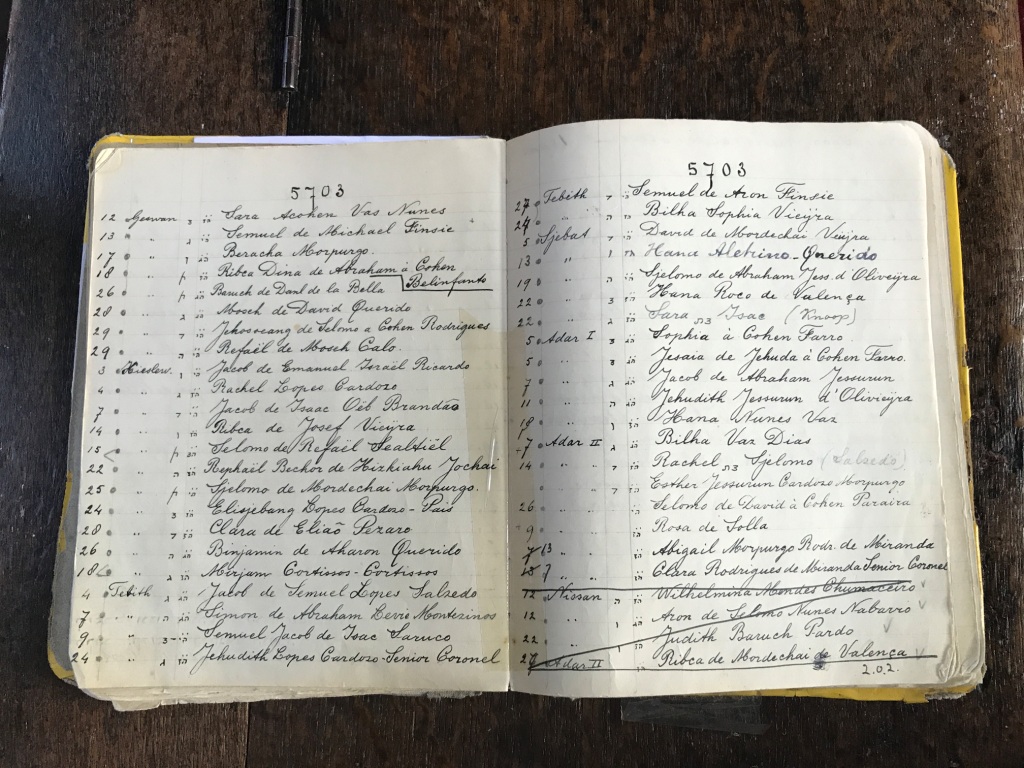 5703
12 Gesvan Sara Acohen Vas Nunes
13 " " Semuel de Michael Finsie
17 " " Beracha Morpurgo.
18 " " Ribca Dina de Abraham à Cohen
Belinfante
26 " " Baruch de Danl de la Bella
28 " " Mosch de David Querido
29 " " de Selomo a Cohen Rodrigues
29 " " Refaël de Mosch Calo
3 Jacob de Emanuel Israël Ricardo
4 " " Rachel Lopes Cardozo
7 " " Jacob de Isaac Oëb Brandão
14 " " Ribca de Josef Vieijra
15 " " Selomo de Refaël Sealtiël
22 " " Rephaël Bechor de Hizkiahu Jochai
25 " " Sjelomo de Mordechai Morpurgo.
24 " " Elisjebang Lopes Cardozo - Pais
28 " " Clara de Elião Pezaro
26 " " Binjamin de Aharon Querido
18 " " Mirjam Cortissos-Cortissos
4 Tebith Jacob de Semuel Lopes Salzedo
7 " " Simon de Abraham Levie Montezinos
9 " " Semuel Jacob de Isac Saruco
24 " " Jehudith Lopes Cardozo-Senior Coronel
5703
27 Tebith Semuel de Aron Finsie
24 " " Bilha Sophia Vieijra
5 Sjebat David de Mordechai Vieijra
13 " " Hana Aletrino-Querido
19 " " Sjelomo de Abraham Jess. d'Oliveijra
22 " " Hana Roco de Valença
22 " " Sara בת Isac (Knoop)
5 Adar I Sophia à Cohen Farro.
5 " " Jesaia de Jehuda à Cohen Farro.
7 " " Jacob de Abraham Jessurun
11 " " Jehudith Jessurun d'Olivieijra
18 " " Hana Nunes Vaz
7 Adar II Bilha Vaz Dias
14 " " Rachel בת Sjelomo (Salzedo)
" " Esther Jessurun Cardozo Morpurgo
26 " " Selomo de David à Cohen Paraira
9 " " Rosa de Solla
13 " " Abigail Morpurgo Rodr. de Miranda
7 " " Clara Rodrigues de Miranda Senior Coronel
12 Nissan Wilhelmina Mendes Chumaceiro
12 " " Aron de Selomo Nunes Nabarro
22 " " Judith Baruch Pardo
27 Adar II Ribca de Mordechai de Valença
2.0.2.